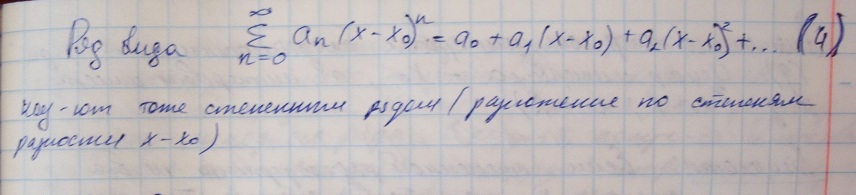 Ряд вида ∑_{n=0}^{∞} aₙ(x-x₀)ⁿ = a₀ + a₁(x-x₀) + a₂(x-x₀)² + ... (4)
наз-ют тоже степенным рядом (разложение по степеням
разности x-x₀)